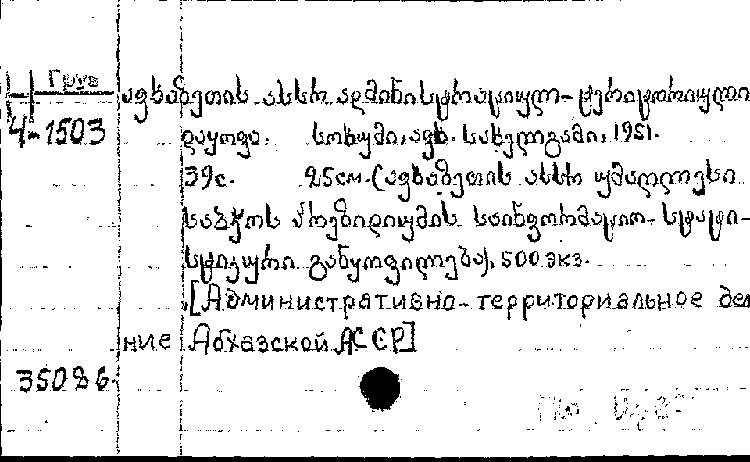 Груз
4-1503
აფხაზეთის ასსრ ადმინისტრაციულ-ტერიტორიული
დაყოფა. სოხუმი, აფხ. სახელგამი, 1951.
39с. 25см. (აფხაზეთის ასსრ უმაღლესი
საბჭოს პრეზიდიუმის საინფორმაციო-სტატი-
სტიკური განყოფილება), 500 экз.
[Административно-территориальное деле
ние Абхазской АССР]
35086.